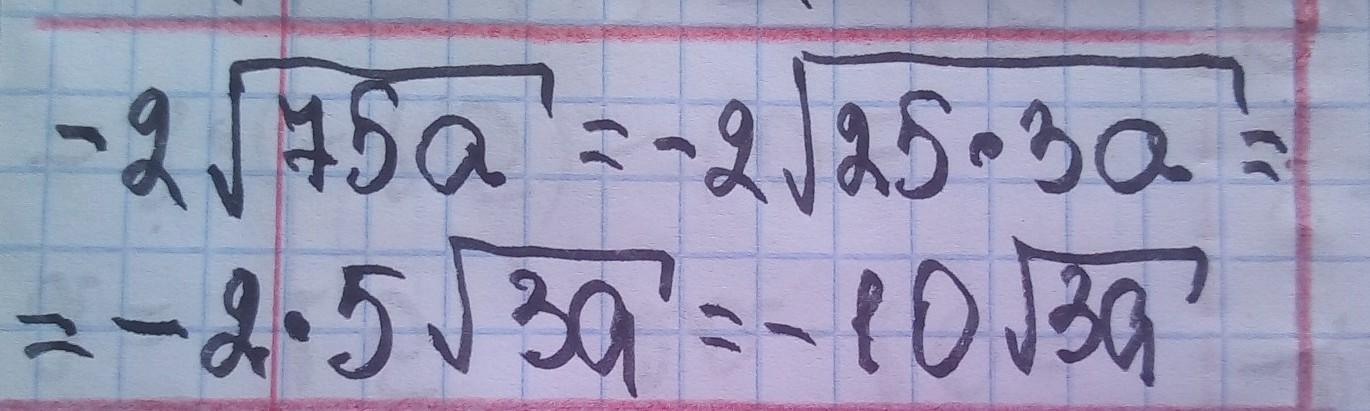 -2√75a = -2√25·3a =
= -2·5√3a = -10√3a